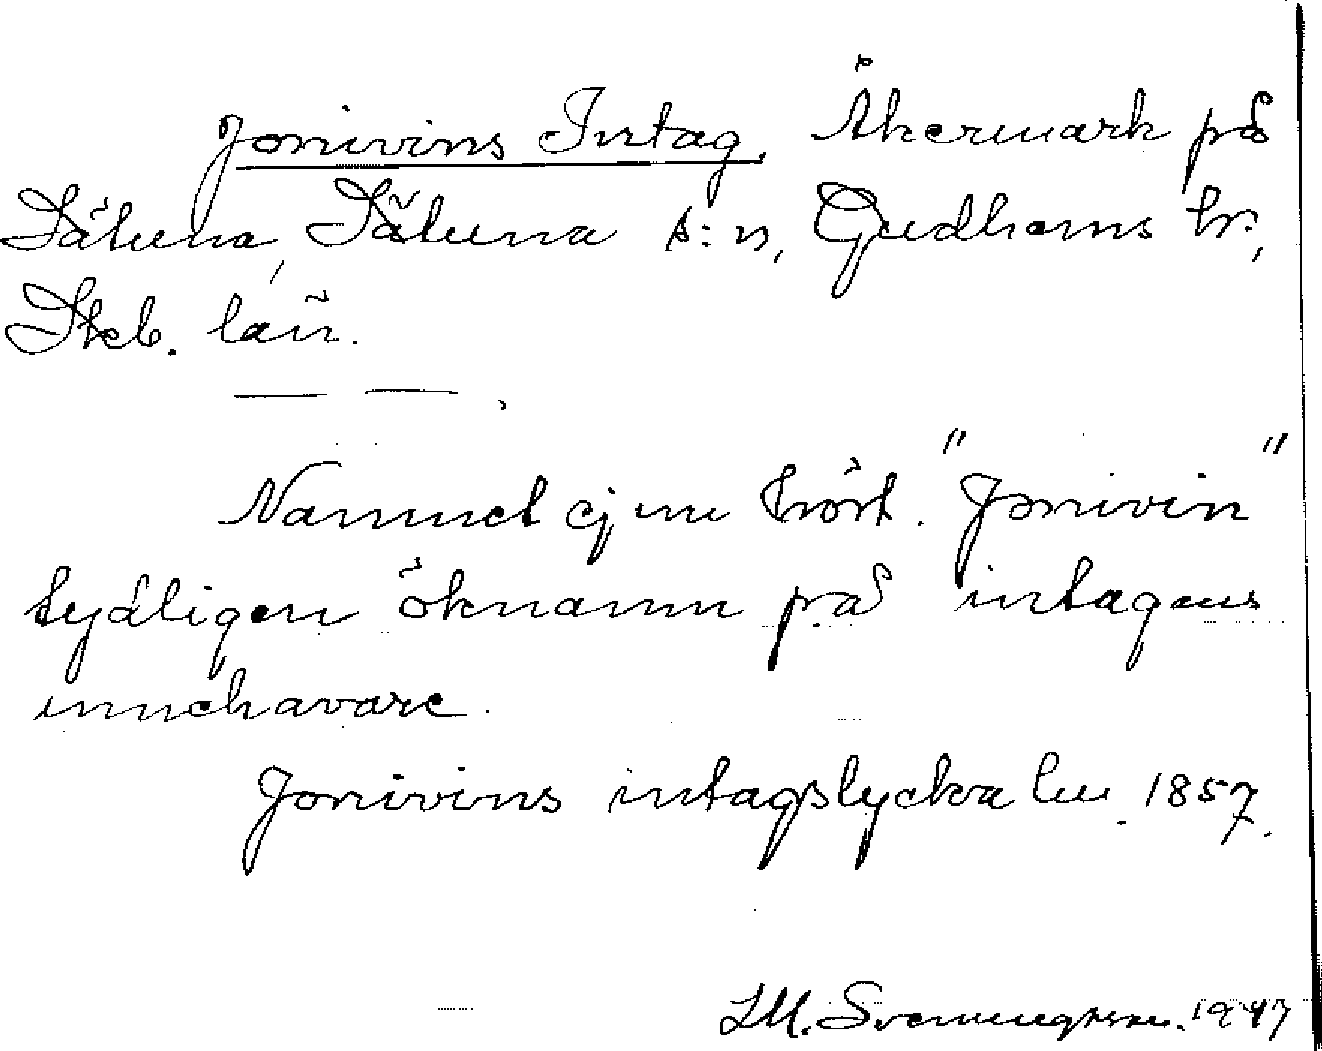 Jonivins Intag, Åkermark på
Sätuna, Sätuna s:n, Gudhems hr,
Skb. län.
Namnet ej mer hört. "Jonivin"
tydligen öknamn på intagens
innehavare.
Jonivins intagslycka lm. 1857.
1947